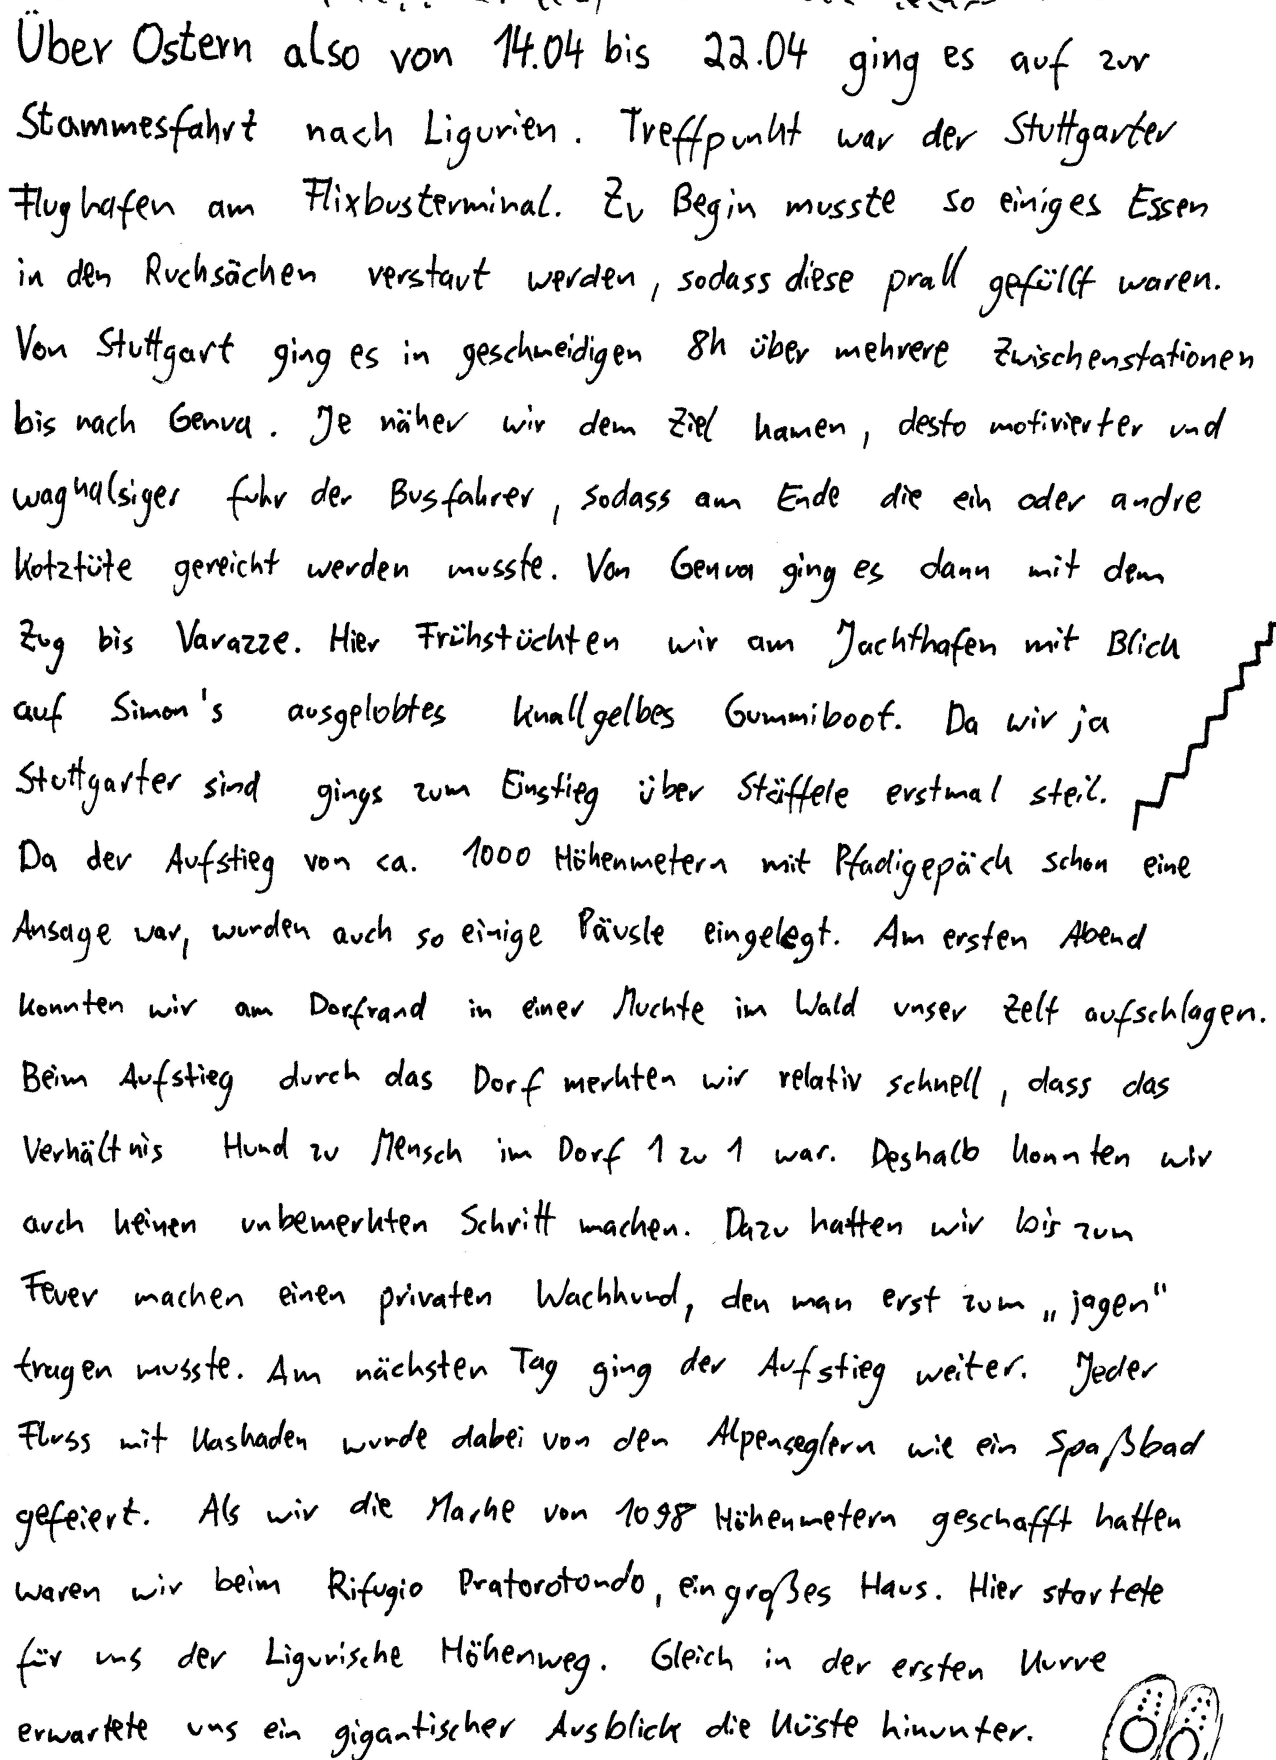 Über Ostern also von 14.04 bis 22.04 ging es auf zur
Stammesfahrt nach Ligurien. Treffpunkt war der Stuttgarter
Flughafen am Flixbusterminal. Zu Begin musste so einiges Essen
in den Rucksäcken verstaut werden, sodass diese prall gefüllt waren.
Von Stuttgart ging es in geschmeidigen 8h über mehrere Zwischenstationen
bis nach Genua. Je näher wir dem Ziel kamen, desto motivierter und
waghalsiger fuhr der Busfahrer, sodass am Ende die ein oder andre
Kotztüte gereicht werden musste. Von Genua ging es dann mit dem
Zug bis Varazze. Hier Frühstückten wir am Jachthafen mit Blick
auf Simon's ausgelobtes knallgelbes Gummiboot. Da wir ja
Stuttgarter sind gings zum Einstieg über Stäffele erstmal steil.
Da der Aufstieg von ca. 1000 Höhenmetern mit Pfadigepäck schon eine
Ansage war, wurden auch so einige Päusle eingelegt. Am ersten Abend
konnten wir am Dorfrand in einer Muchte im Wald unser Zelt aufschlagen.
Beim Aufstieg durch das Dorf merkten wir relativ schnell, dass das
Verhältnis Hund zu Mensch im Dorf 1 zu 1 war. Deshalb konnten wir
auch keinen unbemerkten Schritt machen. Dazu hatten wir bis zum
Feuer machen einen privaten Wachhund, den man erst zum „jagen“
tragen musste. Am nächsten Tag ging der Aufstieg weiter. Jeder
Fluss mit Kaskaden wurde dabei von den Alpenseglern wie ein Spaßbad
gefeiert. Als wir die Marke von 1098 Höhenmetern geschafft hatten
waren wir beim Rifugio Pratorotondo, ein großes Haus. Hier startete
für uns der Ligurische Höhenweg. Gleich in der ersten Kurve
erwartete uns ein gigantischer Ausblick die Küste hinunter.